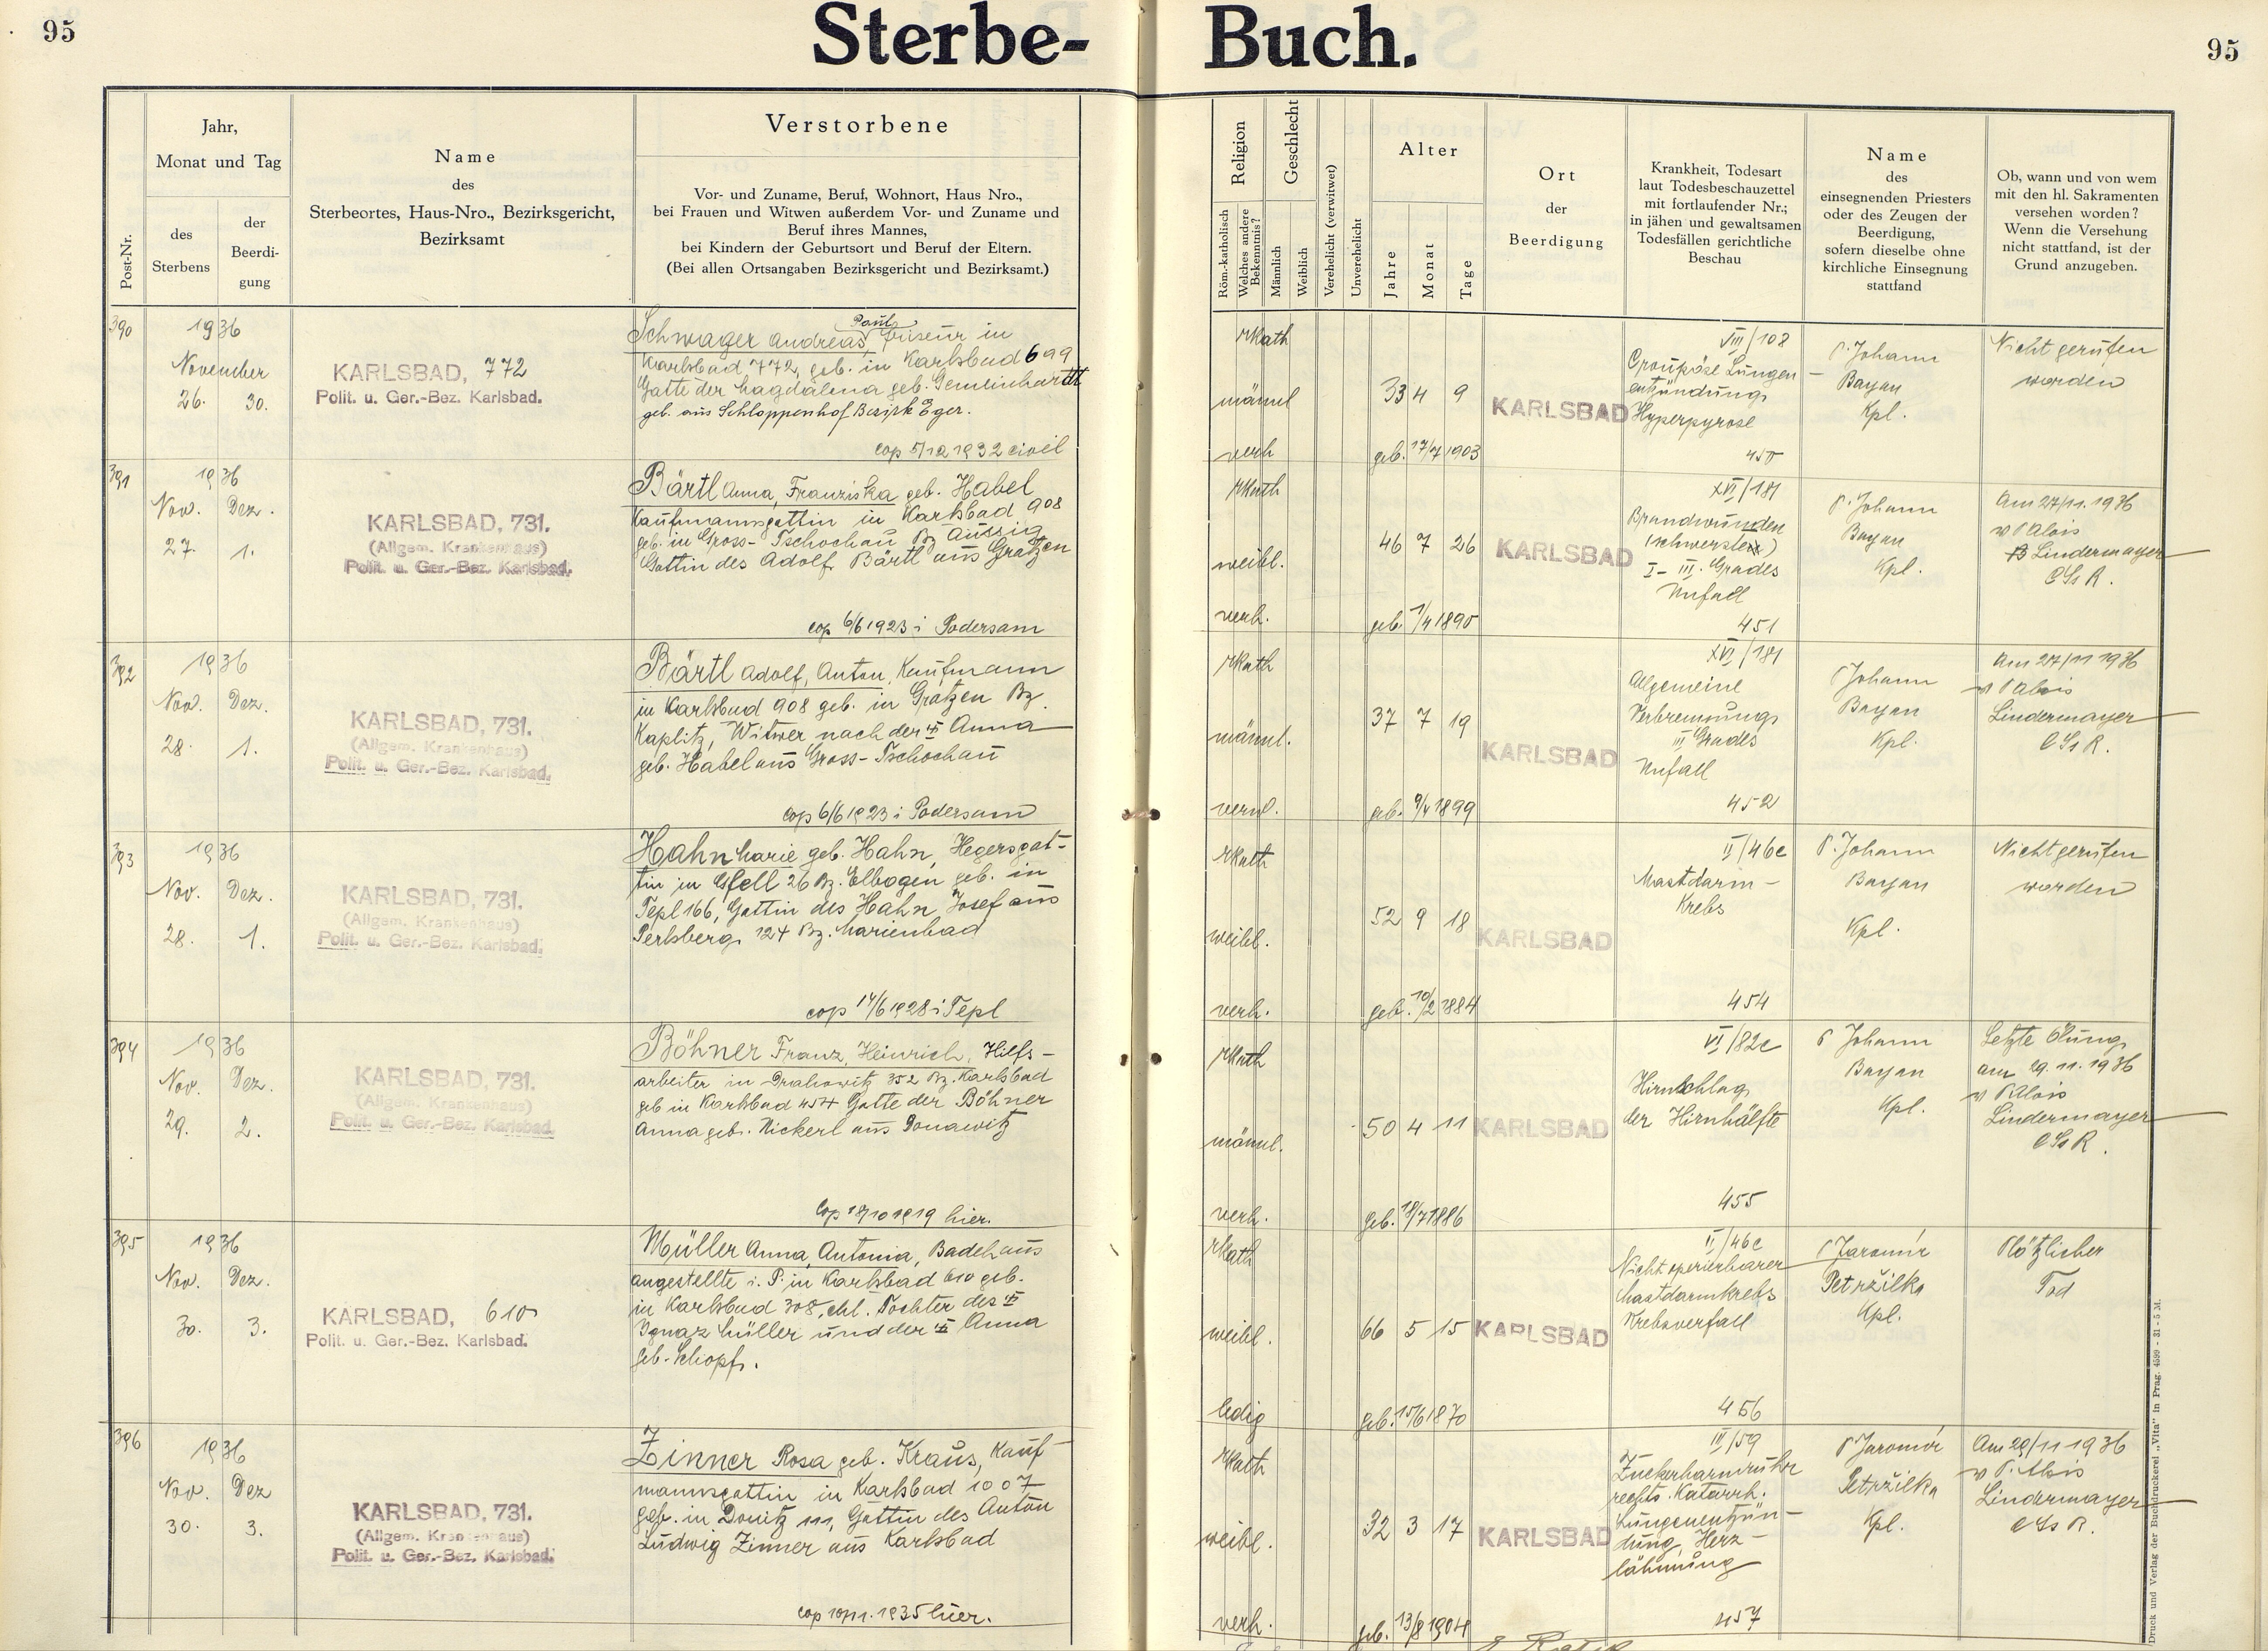 95
Sterbe-
Buch.
95
Post-Nr.
Jahr,
Monat und Tag
des
Sterbens
der
Beerdi-
gung
Name
des
Sterbeortes, Haus-Nro., Bezirksgericht,
Bezirksamt
Verstorbene
Vor- und Zuname, Beruf, Wohnort, Haus Nro.,
bei Frauen und Witwen außerdem Vor- und Zuname und
Beruf ihres Mannes,
bei Kindern der Geburtsort und Beruf der Eltern.
(Bei allen Ortsangaben Bezirksgericht und Bezirksamt.)
Religion
Röm.-katholisch
Welches andere
Bekenntnis?
Geschlecht
Männlich
Weiblich
Verehelicht (verwitwet)
Unverehelicht
Alter
Jahre
Monat
Tage
Ort
der
Beerdigung
Krankheit, Todesart
laut Todesbeschauzettel
mit fortlaufender Nr.;
in jähen und gewaltsamen
Todesfällen gerichtliche
Beschau
Name
des
einsegnenden Priesters
oder des Zeugen der
Beerdigung,
sofern dieselbe ohne
kirchliche Einsegnung
stattfand
Ob, wann und von wem
mit den hl. Sakramenten
versehen worden?
Wenn die Versehung
nicht stattfand, ist der
Grund anzugeben.
390
1936
November
26. 30.
KARLSBAD, 772
Polit. u. Ger.-Bez. Karlsbad.
Paul
Schwager Andreas, Friseur in
Karlsbad 772, geb. in Karlsbad 699
Gatte der Magdalena geb. Gemeinhardt
geb. aus Schloppenhof Bezirk Eger.
cop 5/12 1932 civil
rkath
männl
verh
33 4 9
geb. 17/7 1903
KARLSBAD
VIII/108
Croupöse Lungen-
entzündung
Hyperpyrose
450
P. Johann
Bayan
Kpl.
Nicht gerufen
worden
391
1936
Nov. Dez.
27. 1.
KARLSBAD, 731.
(Allgem. Krankenhaus)
Polit. u. Ger.-Bez. Karlsbad.
Bärtl Anna, Franziska geb. Habel
Kaufmannsgattin in Karlsbad 908
geb. in Gross-Tschochau Bz Aussig
Gattin des Adolf Bärtl aus Gratzen
cop 6/6 1923 i Podersam
rkath
weibl.
verh.
46 7 26
geb. 1/4 1890
KARLSBAD
XVI/181
Brandwunden
(schwerste)
I-III. Grades
Unfall
451
P. Johann
Bayan
Kpl.
Am 27/11. 1936
v P Alois
Lindermayer
CSsR.
392
1936
Nov. Dez.
28. 1.
KARLSBAD, 731.
(Allgem. Krankenhaus)
Polit. u. Ger.-Bez. Karlsbad.
Bärtl Adolf, Anton, Kaufmann
in Karlsbad 908 geb. in Gratzen Bz.
Kaplitz, Witwer nach der † Anna
geb. Habel aus Gross-Tschochau
cop 6/6 1923 i Podersam
rkath
männl.
verw.
37 7 19
geb. 9/4 1899
KARLSBAD
XVI/181
Allgemeine
Verbrennung
III Grades
Unfall
452
P Johann
Bayan
Kpl.
Am 27/11 1936
v P Alois
Lindermayer
CSsR.
393
1936
Nov. Dez.
28. 1.
KARLSBAD, 731.
(Allgem. Krankenhaus)
Polit. u. Ger.-Bez. Karlsbad.
Hahn Marie geb. Hahn, Hegersgat-
tin in Gfell 26 Bz. Elbogen geb. in
Tepl 166, Gattin des Hahn Josef aus
Perlsberg 124 Bz. Marienbad
cop 14/6 1928 i Tepl
rkath
weibl.
verh.
52 9 18
geb. 10/2 1884
KARLSBAD
II/46c
Mastdarm-
Krebs
454
P. Johann
Bayan
Kpl.
Nicht gerufen
worden
394
1936
Nov. Dez.
29. 2.
KARLSBAD, 731.
(Allgem. Krankenhaus)
Polit. u. Ger.-Bez. Karlsbad.
Böhner Franz, Heinrich, Hilfs-
arbeiter in Drahowitz 352 Bz. Karlsbad
geb in Karlsbad 454 Gatte der Böhner
Anna geb. Nickerl aus Donawitz
Cop 18/10 1919 hier.
rkath
männl.
verh.
50 4 11
geb. 18/7 1886
KARLSBAD
VI/82c
Hirnschlag
der Hirnhälfte
455
P Johann
Bayan
Kpl.
Letzte Ölung
am 29. 11. 1936
v P Alois
Lindermayer
CSsR.
395
1936
Nov. Dez.
30. 3.
KARLSBAD, 610
Polit. u. Ger.-Bez. Karlsbad.
Müller Anna, Antonia, Badehaus
angestellte i. P. in Karlsbad 610 geb.
in Karlsbad 308, ehl. Tochter des †
Ignaz Müller und der † Anna
geb. Schopf.
rkath
weibl.
ledig
66 5 15
geb. 15/6 1870
KARLSBAD
II/46c
Nicht operierbarer
Mastdarmkrebs
Krebsverfall
456
P Jaromír
Petržilka
Kpl.
Plötzlicher
Tod
396
1936
Nov. Dez
30. 3.
KARLSBAD, 731.
(Allgem. Krankenhaus)
Polit. u. Ger.-Bez. Karlsbad.
Zinner Rosa geb. Kraus, Kauf-
mannsgattin in Karlsbad 1007
geb. in Donitz 111, Gattin des Anton
Ludwig Zinner aus Karlsbad
cop 10/11. 1935 hier.
rkath
weibl.
verh.
32 3 17
geb. 13/8 1904
KARLSBAD
III/59
Zuckerharnruhr
rechts. Katarrh.
Lungenentzün-
dung, Herz-
lähmung
457
P Jaromír
Petržilka
Kpl.
Am 29/11 1936
v P. Alois
Lindermayer
CSsR.
Druck und Verlag der Buchdruckerei „Vita" in Prag. 4599 - 31 - 5 M.